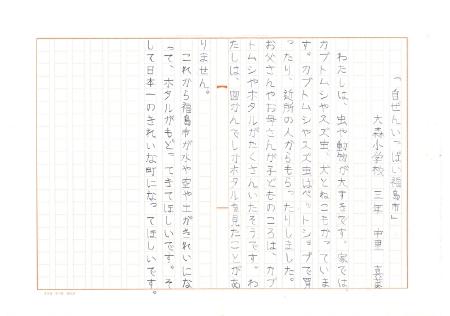 「自ぜんいっぱい福島市」
大森小学校 三年 中里
わたしは、虫や動物が大すきです。家では、
カブトムシやスズ虫、犬とねこもかっていま
す。カブトムシやスズ虫はペットショップで買
ったり、近所の人からもらったりしました。
お父さんやお母さんが子どものころは、カブ
トムシやホタルがたくさんいたそうです。わ
たしは、図かんでしかホタルを見たことがあ
りません。
これから福島市が水や空や土がきれいにな
って、ホタルがもどってきてほしいです。そ
して日本一のきれいな町になってほしいです。